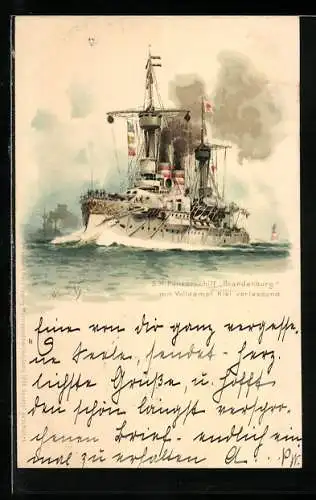 S.M. Panzerschiff „Brandenburg"
mit Volldampf Kiel verlassend
Eine von dir ganz vergesse-
ne Seele, sendet herz-
lichste Grüße, u. hofft
den schön längst verspro-
chenen Brief endlich ein-
mal zu erhalten